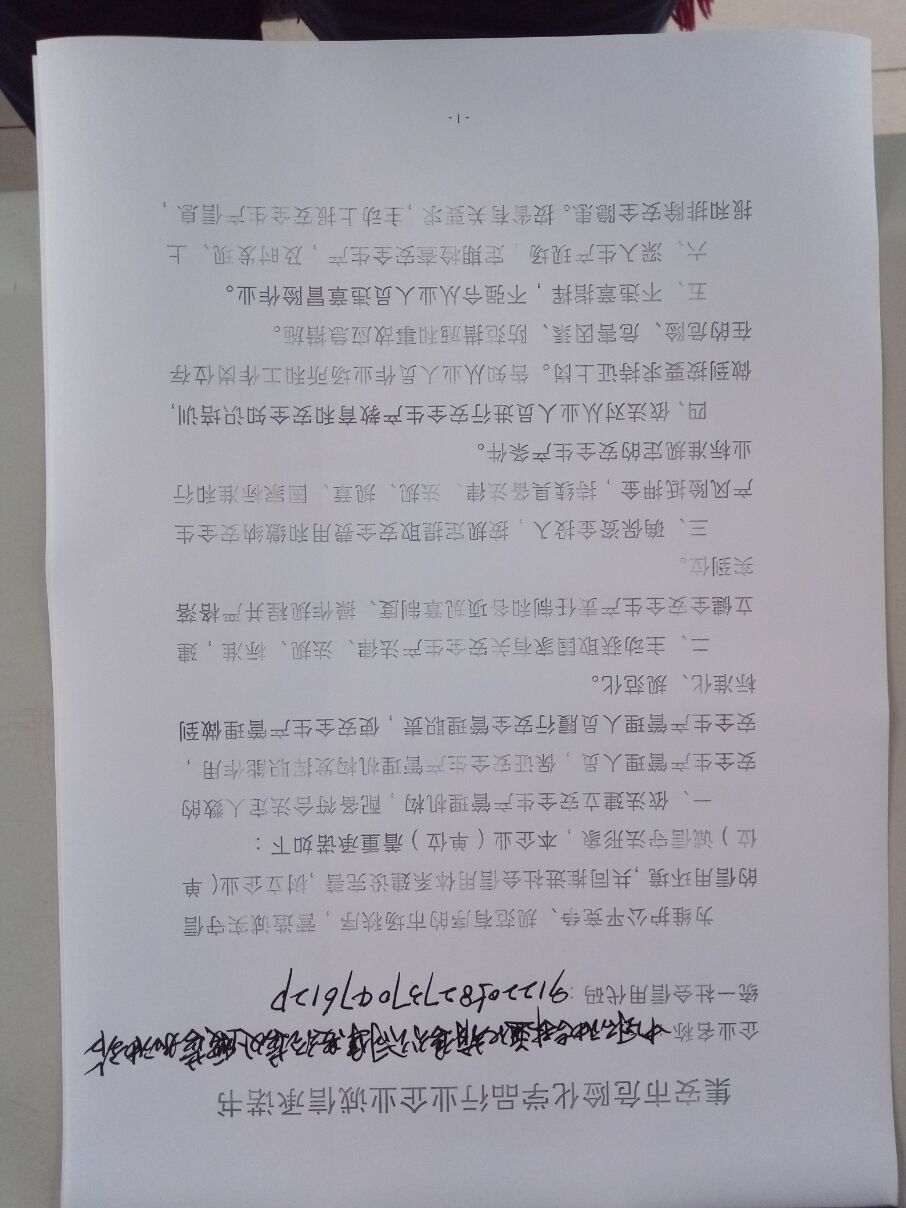 集安市危险化学品行业企业诚信承诺书
企业名称
统一社会信用代码：
为维护公平竞争、规范有序的市场秩序，营造诚实守信
的信用环境,共同推进社会信用体系建设完善，树立企业（单
位）诚信守法形象，本企业（单位）着重承诺如下：
一、依法建立安全生产管理机构，配备符合法定人数的
安全生产管理人员，保证安全生产管理机构发挥职能作用，
安全生产管理人员履行安全管理职责，使安全生产管理做到
标准化、规范化。
二、主动获取国家有关安全生产法律、法规、标准，建
立健全安全生产责任制和各项规章制度、操作规程并严格落
实到位。
三、确保资金投入，按规定提取安全费用和缴纳安全生
产风险抵押金，持续具备法律、法规、规章、国家标准和行
业标准规定的安全生产条件。
四、依法对从业人员进行安全生产教育和安全知识培训,
做到按要求持证上岗。告知从业人员作业场所和工作岗位存
在的危险、危害因素、防范措施和事故应急措施。
五、不违章指挥，不强令从业人员违章冒险作业。
六、深入生产现场，定期检查安全生产，及时发现、上
报和排除安全隐患。按省有关要求,主动上报安全生产信息，
- 1 -